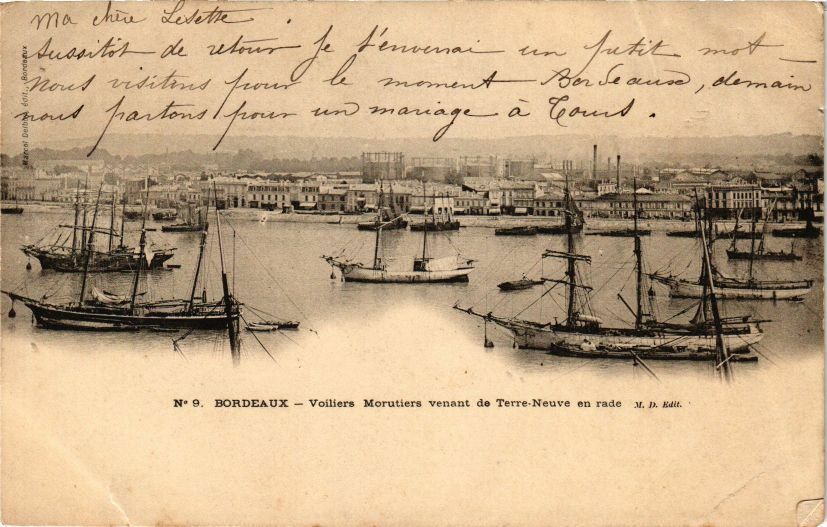 Ma chère Lisette.
Sussitôt de retour je t'enverrai un petit mot_
Nous visitons pour le moment Bordeaux, demain
nous partons pour un mariage à Tours.
Marcel Delboy, édit., Bordeaux
Nº 9. BORDEAUX – Voiliers Morutiers venant de Terre-Neuve en rade M. D. Edit.